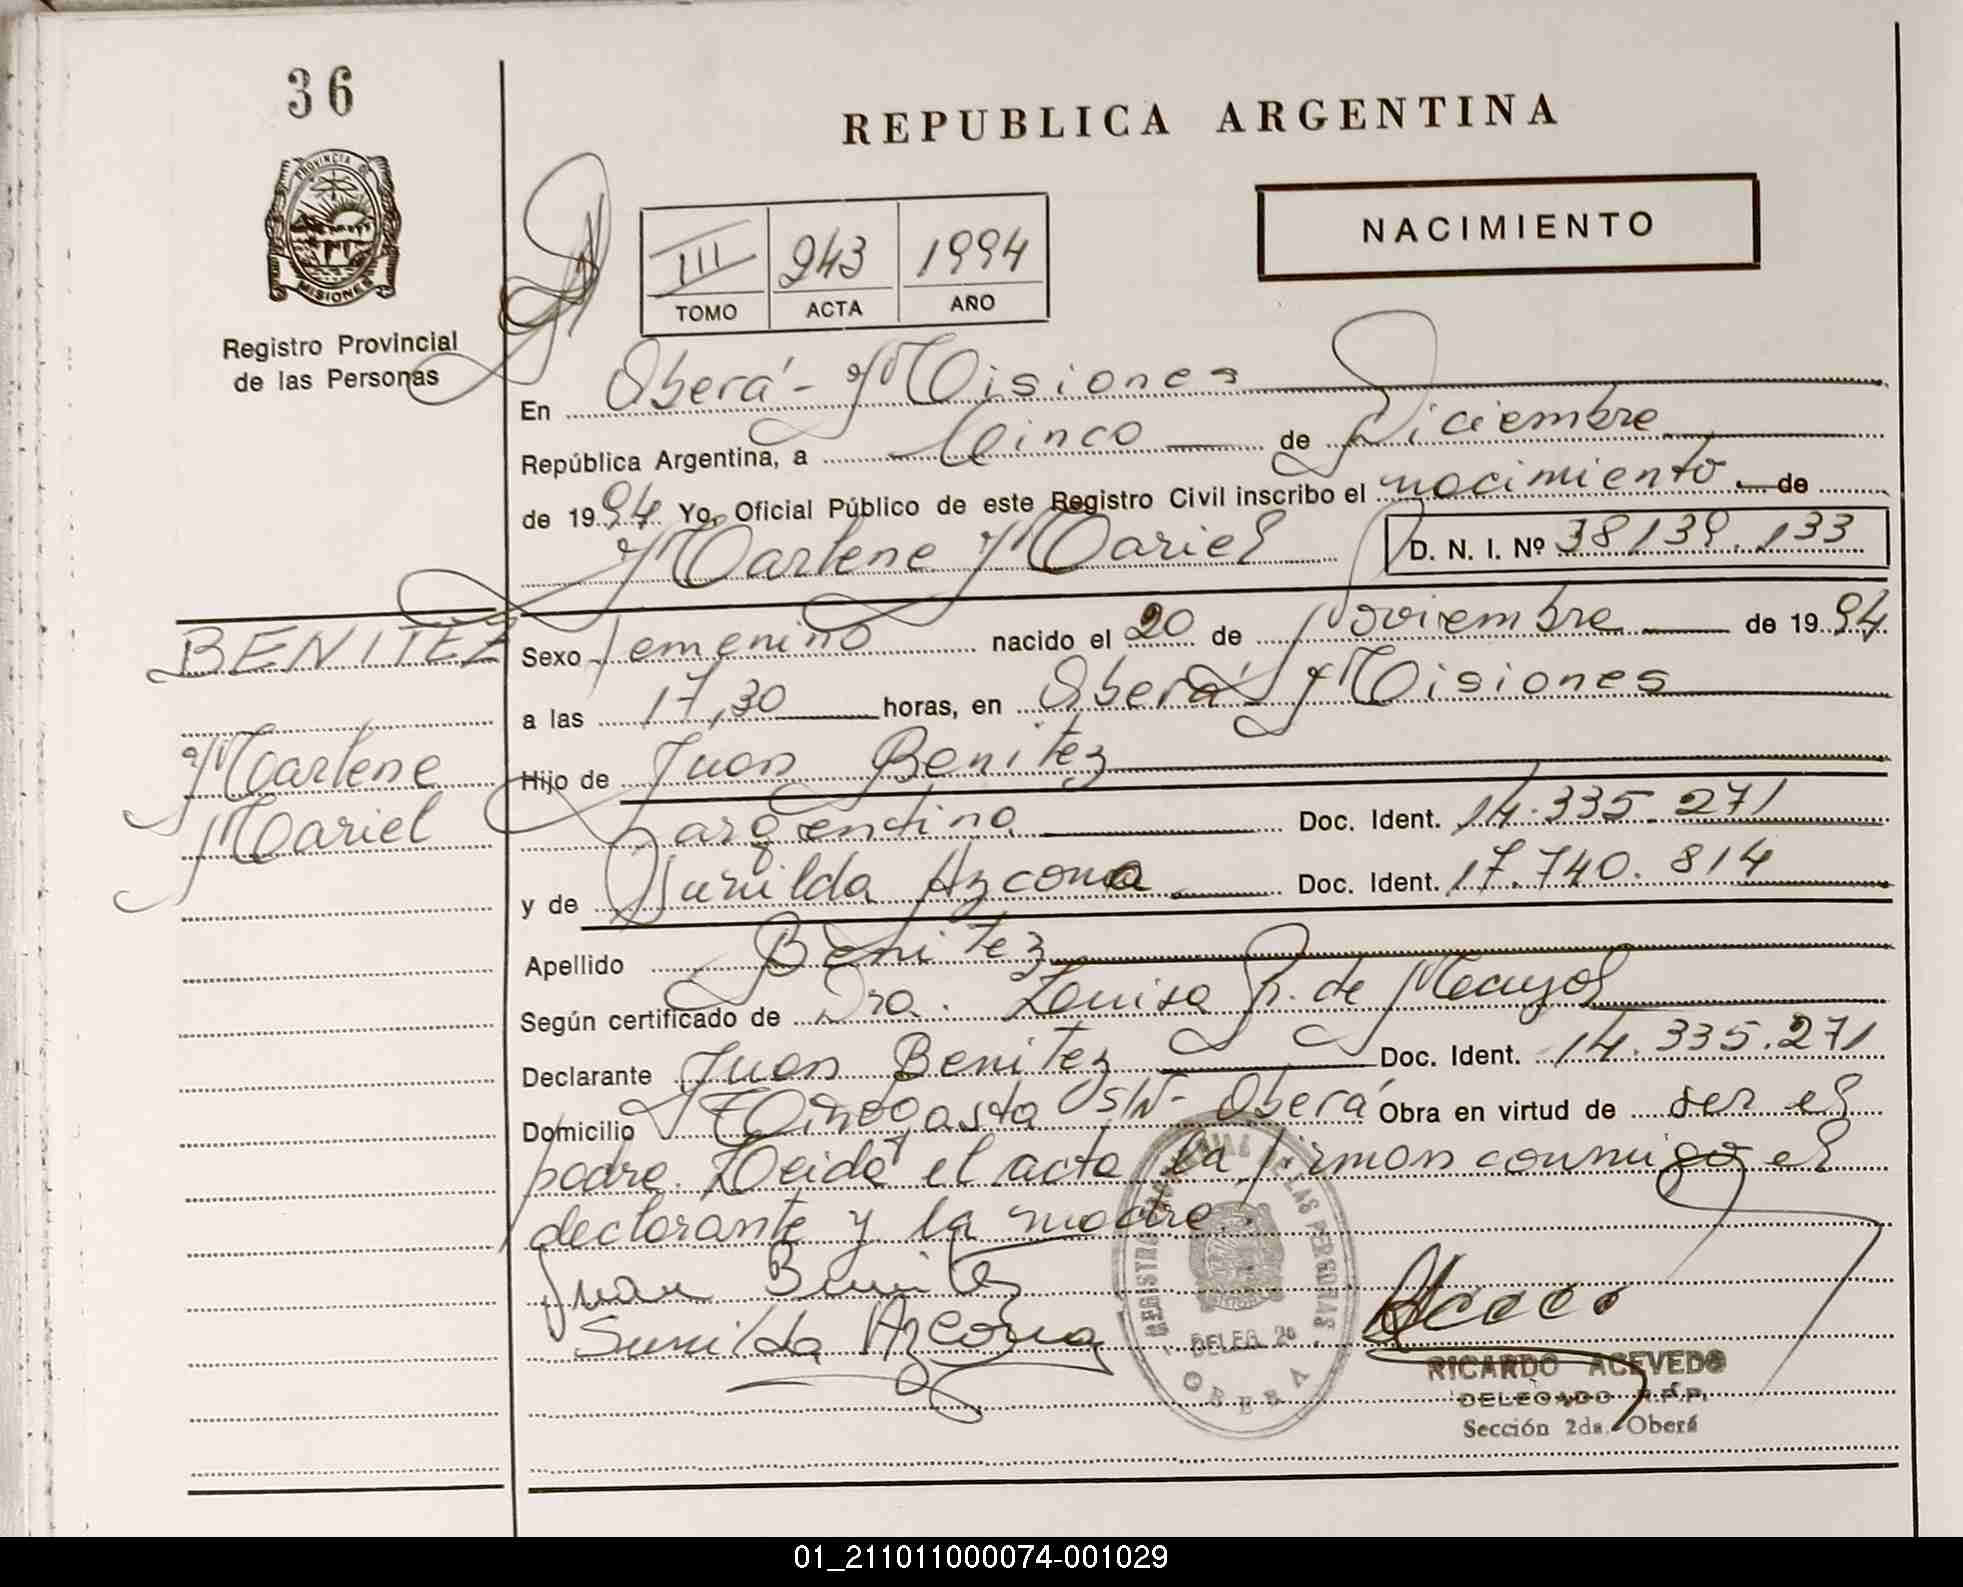 36
REPUBLICA ARGENTINA
PROVINCIA DE
MISIONES
Registro Provincial
de las Personas
III 943 1994
TOMO ACTA AÑO
NACIMIENTO
En Oberá - Misiones
República Argentina, a Cinco de Diciembre
de 1994 Yo, Oficial Público de este Registro Civil inscribo el nacimiento de
Marlene Mariel D. N. I. Nº 38139.133
BENITEZ
Marlene
Mariel
Sexo femenino nacido el 20 de Noviembre de 1994
a las 17,30 horas, en Oberá Misiones
Hijo de Juan Benitez
argentino Doc. Ident. 14.335.271
y de Sunilda Azcona Doc. Ident. 17.740.814
Apellido Benitez
Según certificado de Dra. Louisa de
Declarante Juan Benitez Doc. Ident. 14.335.271
Domicilio Tinogasta S/N - Oberá Obra en virtud de ser el
padre. Leida el acta la firman conmigo el
declarante y la madre.
Juan Benitez
Sunilda Azcona
REGISTRO LAS PERSONAS
DELEG. 2a
OBERA
RICARDO ACEVEDO
DELEGADO R.P.P.
Sección 2da. Oberá
01_211011000074-001029